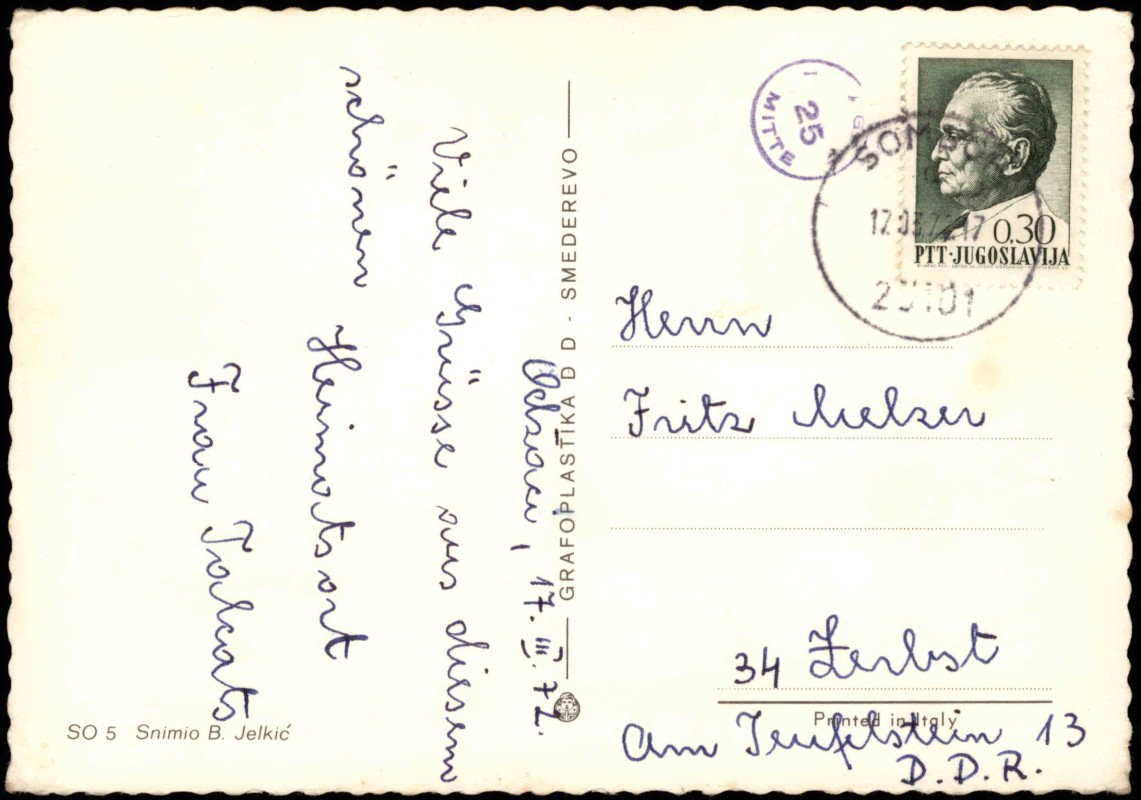 Odžaci, 17. III. 72.
Viele Grüsse aus diesem
schönen Heimatsort
Frau Takats
SO 5 Snimio B. Jelkić
GRAFOPLASTIKA D D - SMEDEREVO
25
MITTE
SOMBOR
17.03.72.17
25101
0,30
PTT·JUGOSLAVIJA
Herrn
Fritz Melzer
34 Zerbst
Printed in Italy
Am Teufelstein 13
D.D.R.